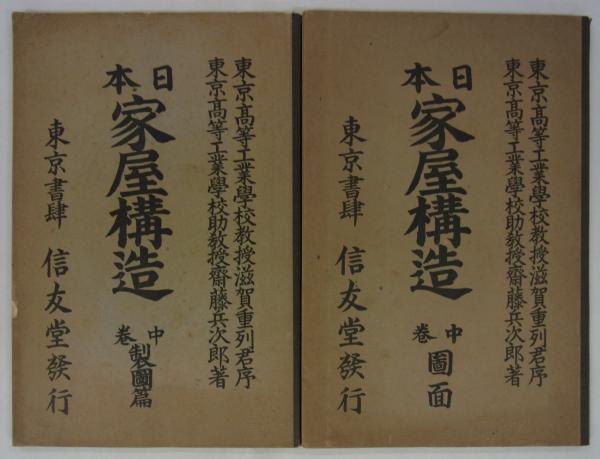 東京高等工業學校教授滋賀重列君序
東京高等工業學校助教授齋藤兵次郎著
日本
家屋構造
中卷
製圖篇
東京書肆 信友堂發行
東京高等工業學校教授滋賀重列君序
東京高等工業學校助教授齋藤兵次郎著
日本
家屋構造
中卷
圖面
東京書肆 信友堂發行